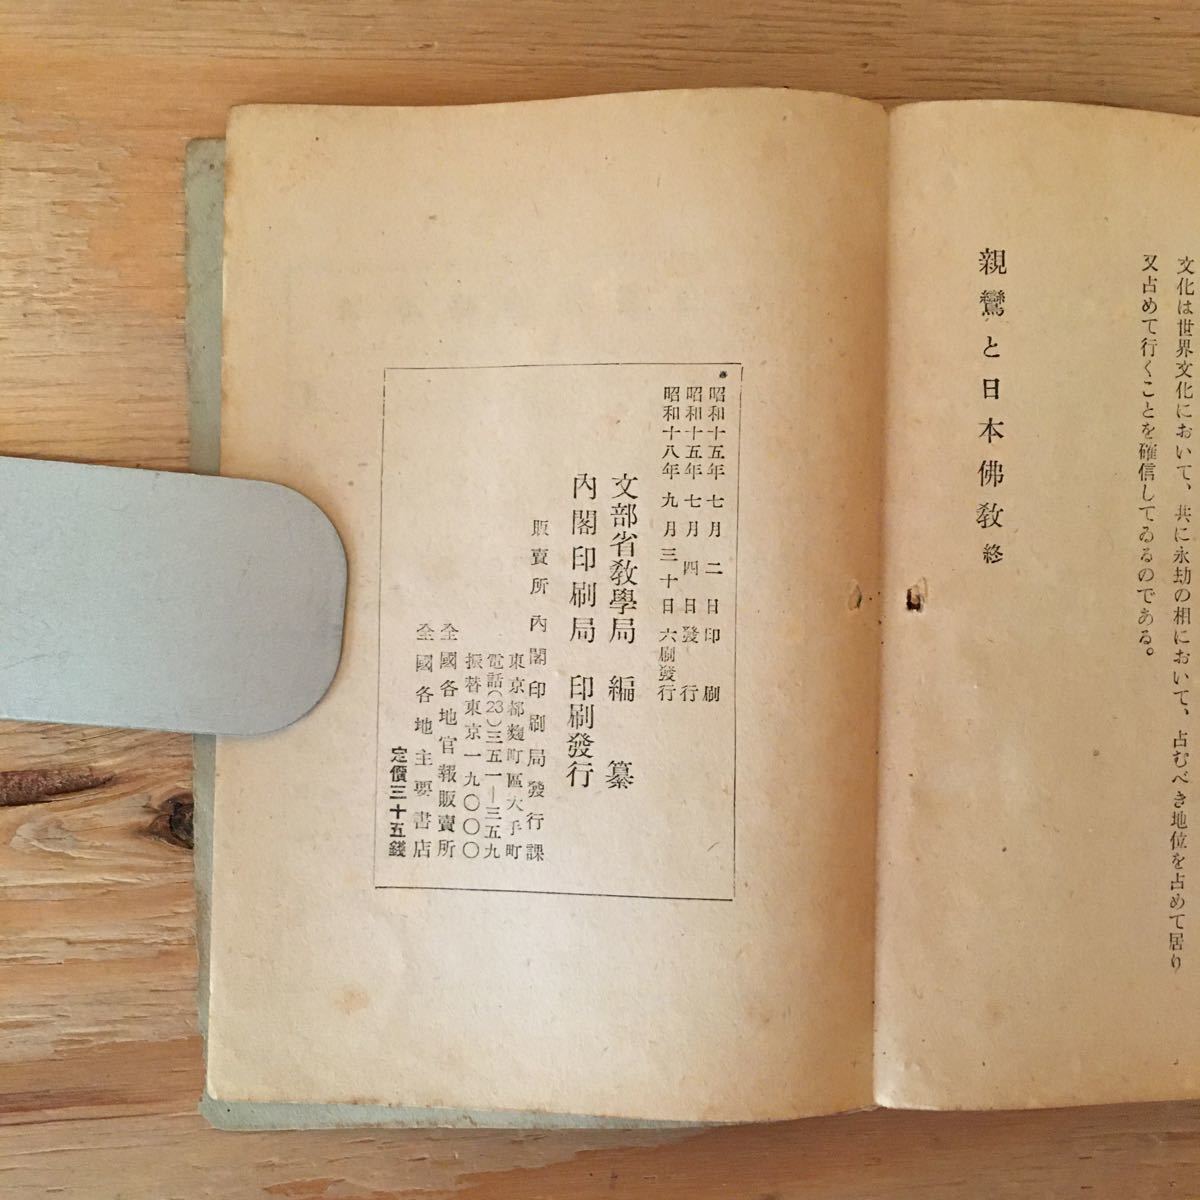 文化は世界文化において、共に永劫の相において、占むべき地位を占めて居り
又占めて行くことを確信してゐるのである。
親鸞と日本佛教 終
昭和十五年七月二日印刷
昭和十五年七月四日發行
昭和十八年九月三十日六刷發行
文部省教學局 編纂
內閣印刷局 印刷發行
販賣所 內閣印刷局發行課
東京都麴町區大手町
電話(23)三五一一三五九
振替東京一九〇〇〇
全國各地官報販賣所
全國各地主要書店
定價三十五錢